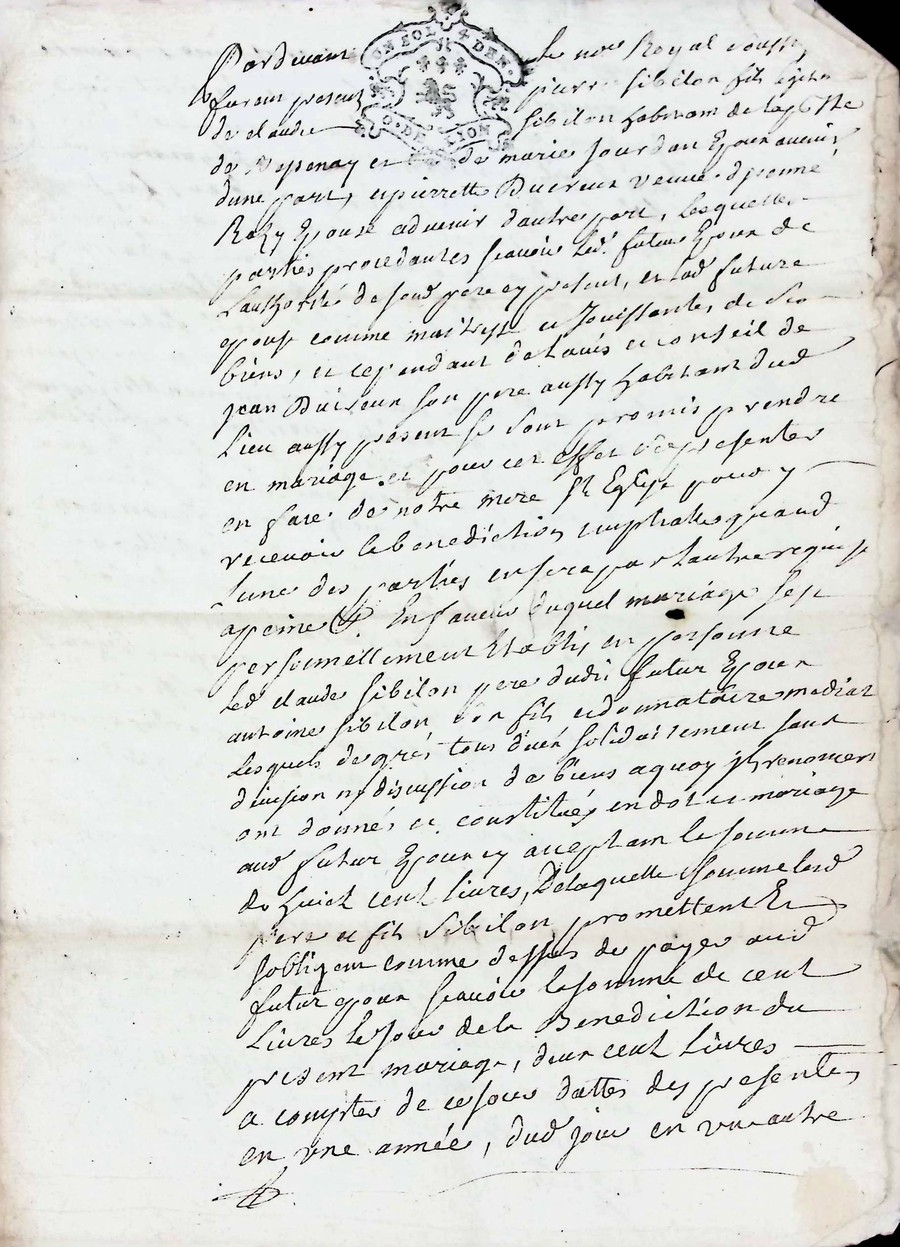 Pardevant le no.re Royal soussig
furent present pierre sibilon fils legitim
de claude sibilon habitant de la p
de et de marie Jourdan Epoux avenir
dune part, et pierrette Ducreux veuve d
Rozy Epouse advenir d'autre part, Lesquelles
parties procedantes scavoir led. futur Epoux de
Lauthorité de sond. pere cy present, et lad. future
epouse comme maitresse et Jouissantes de se
biens, et cependant de lavis et conseil de
Jean Ducreux son pere aussy habitant dud
Lieu aussy present se sont promis prendre
en mariage et pour cet effet se presenter
en face de notre mere St Eglise pour y
recevoir la benediction nuptialle quand
Lune des parties en sera par Lautre requise
a peine &. En faveur duquel mariage sest
personnellement Etablis en personne
Led. claude sibilon pere dudit futur Epoux
antoine sibilon son fils et donnataire mediat
Lesquels de grés tous deux solidairement sans
division ny discussion de biens a quoy ils renoncent
ont donnés et constitués en dot et mariage
aud. futur Epoux cy acceptant la somme
de huict cent livres, De laquelle somme lesd
pere et fils sibilon promettent Et
sobligent comme dessus de payer aud
futur epoux scavoir la somme de cent
Livres le jour de la Benediction du
present mariage, deux cent Livres
a compter de ce jour datte des presentes
en une année, dud. jour en un autre
ON SOL 4 DEN.
G. DE LION